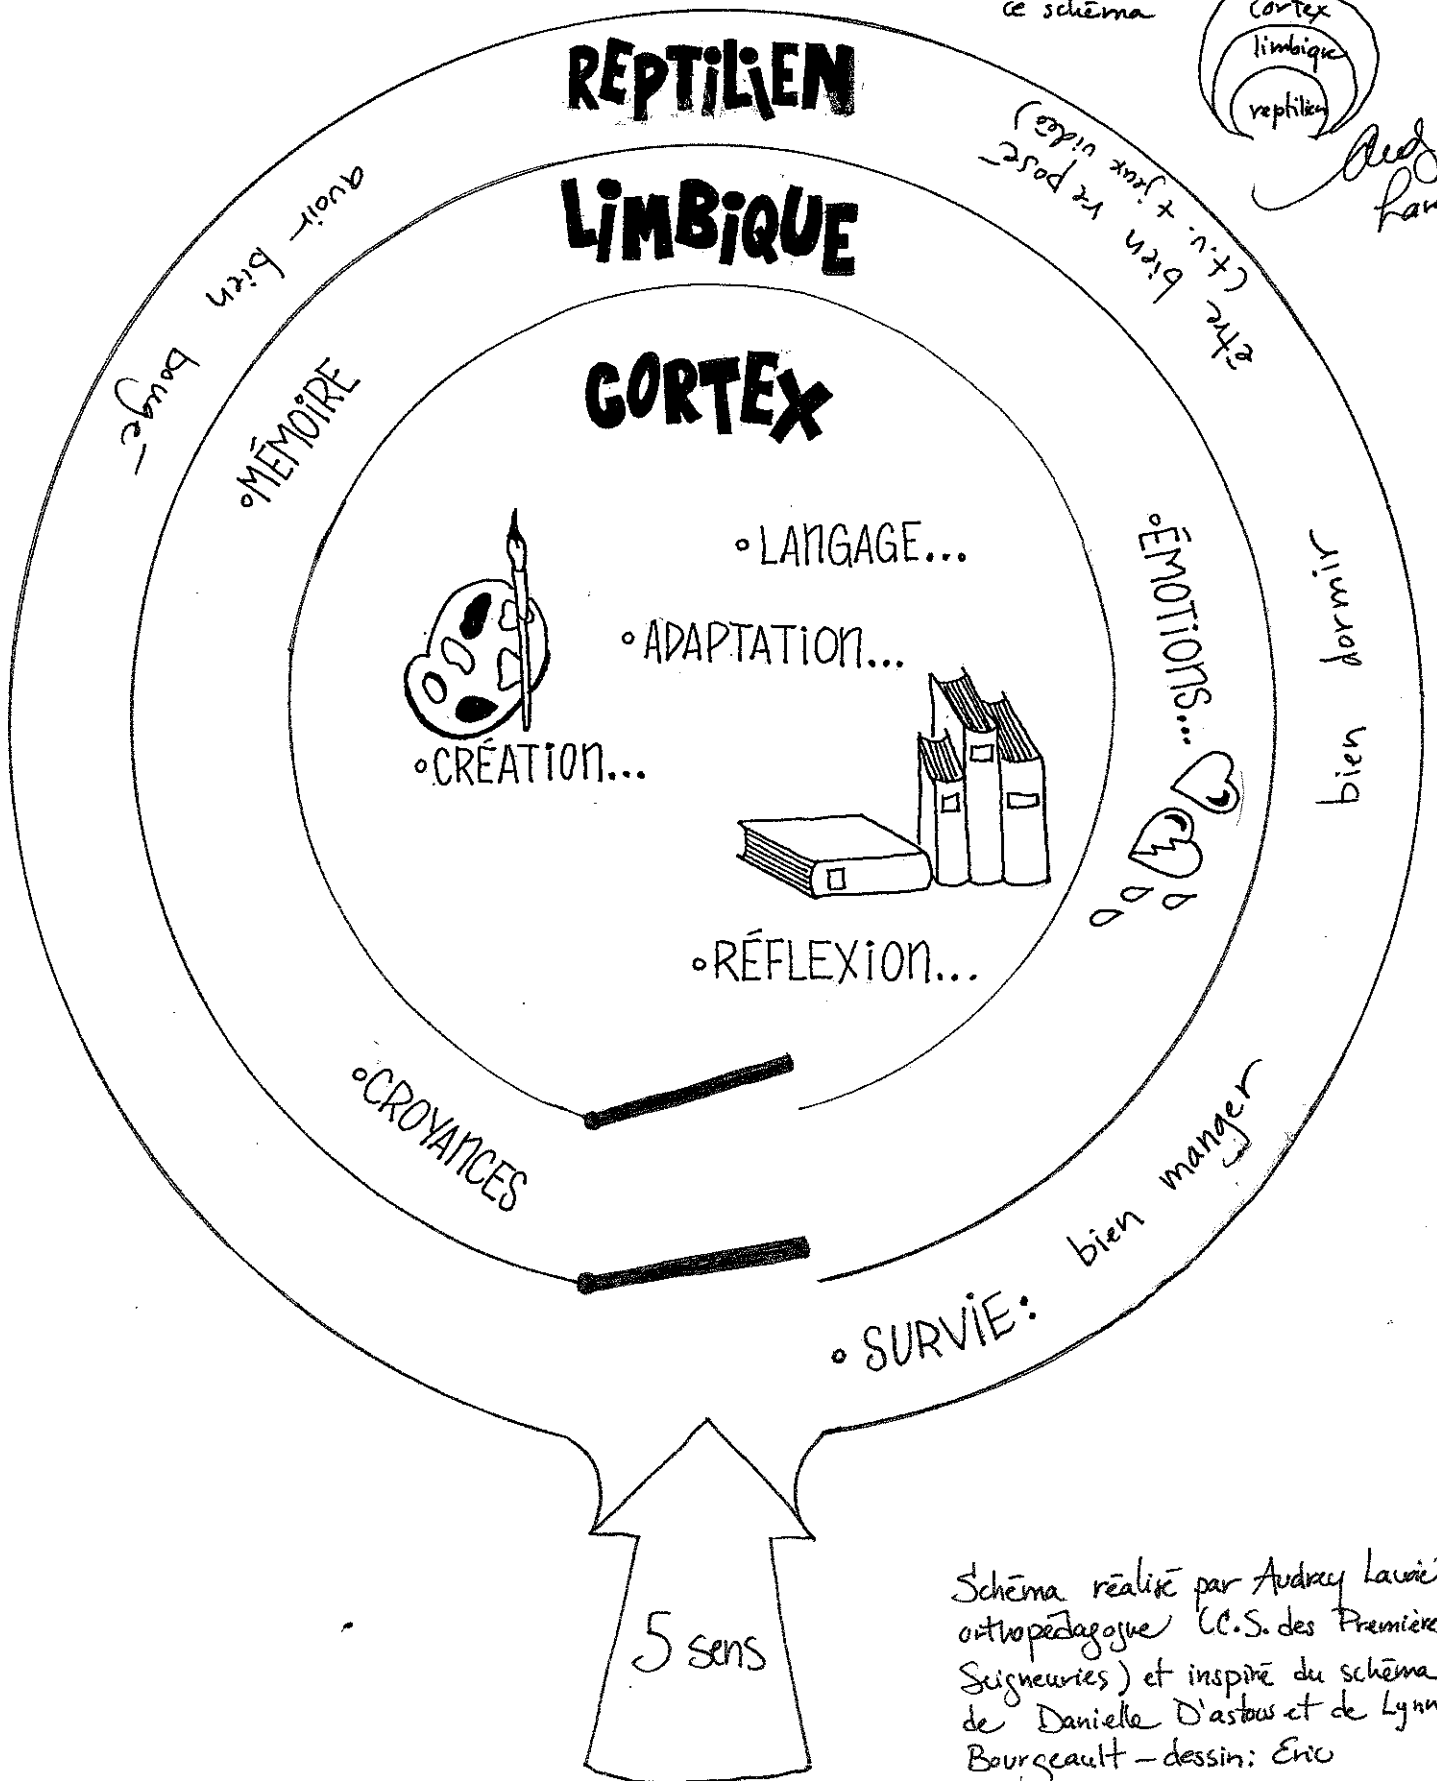 ce schéma
cortex
limbique
reptilien
REPTiLiEN
LiMBiQUE
CORTEX
avoir bien bougé
être bien reposé
(t.v. + jeux vidéo)
°MÉMOiRE
°LANGAGE...
°ADAPTATiON...
°CRÉATiON...
°RÉFLEXiON...
°ÉMOTiONS...
bien dormir
°CROYANCES
bien manger
°SURViE:
5 sens
Schéma réalisé par Audrey
orthopédagogue (C.S. des Première
Seigneuries) et inspiré du schéma
de Danielle D'astous et de Lynn
Bourgeault – dessin: Eric